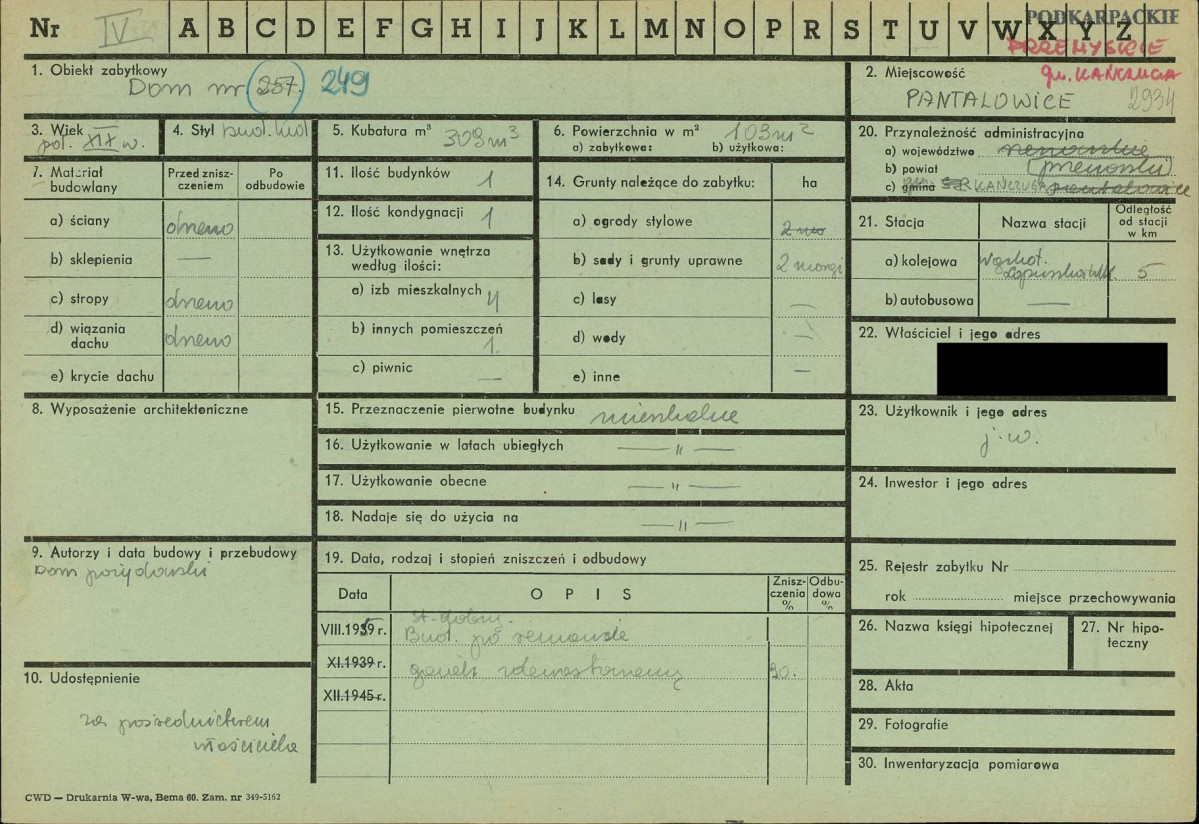 Nr IV A B C D E F G H I J K L M N O P R S T U V W X Y Z
PODKARPACKIE
PRZEMYSKIE
gm. KAŃCZUGA
1. Obiekt zabytkowy
Dom nr 257. 249
2. Miejscowość
PANTALOWICE 2934
3. Wiek
poł. XIX w.
4. Styl bud. lud
5. Kubatura m³ 309m³
6. Powierzchnia w m² 103m²
a) zabytkowa: b) użytkowa:
20. Przynależność administracyjna
a) województwo rzeszowskie
b) powiat przeworski
c) gmina KAŃCZUGA pantalowice
7. Materiał budowlany
Przed zniszczeniem
Po odbudowie
a) ściany drewno
b) sklepienia —
c) stropy drewno
d) wiązania dachu drewno
e) krycie dachu
11. Ilość budynków 1
12. Ilość kondygnacji 1
13. Użytkowanie wnętrza według ilości:
a) izb mieszkalnych 4
b) innych pomieszczeń 1.
c) piwnic —
14. Grunty należące do zabytku: ha
a) ogrody stylowe
b) sady i grunty uprawne 2 morgi
c) lasy —
d) wody —
e) inne —
21. Stacja
Nazwa stacji
Odległość od stacji w km
a) kolejowa wąskot. Łopuszka Wlk. 5
b) autobusowa —
22. Właściciel i jego adres
8. Wyposażenie architektoniczne
15. Przeznaczenie pierwotne budynku mieszkalne
16. Użytkowanie w latach ubiegłych — " —
17. Użytkowanie obecne — " —
18. Nadaje się do użycia na — " —
23. Użytkownik i jego adres
j.w.
24. Inwestor i jego adres
9. Autorzy i data budowy i przebudowy
Dom pożydowski
19. Data, rodzaj i stopień zniszczeń i odbudowy
Data OPIS Zniszczenia % Odbudowa %
VIII.1959 r. St. dobry.
Bud. po remoncie
XI.1939 r. ganek zdewastowany 30.
XII.1945 r.
25. Rejestr zabytku Nr
rok miejsce przechowywania
26. Nazwa księgi hipotecznej
27. Nr hipoteczny
10. Udostępnienie
za pośrednictwem
właściciela
28. Akta
29. Fotografie
30. Inwentaryzacja pomiarowa
CWD — Drukarnia W-wa, Bema 60. Zam. nr 349-5162